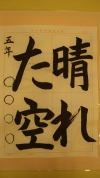 晴れ
た空
五年 〇〇〇〇